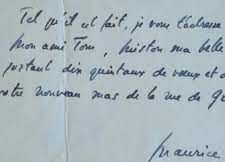 Tel qu'il est fait, je vous l'adresse
mon ami Tom,
portant dix quintaux de vœux et d
votre nouveau mas de la rue de Gr
Maurice